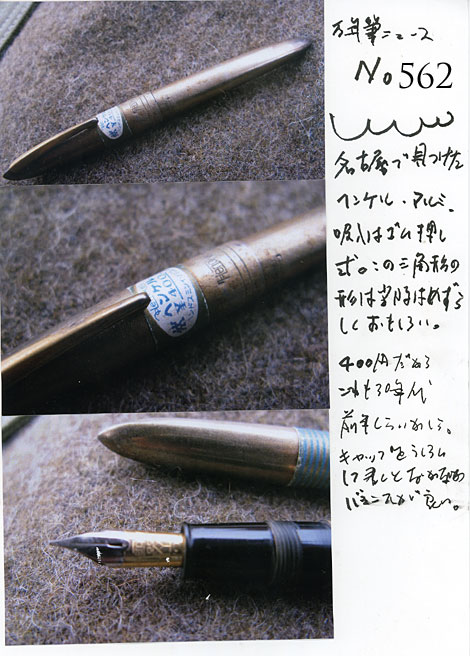 万年筆ニュース
No 562
名古屋で見つけた
ヘンケル・アルミ、
吸入はゴム押し
式。この三角形の
形は当時はめずら
しくおもしろい。
400円だから
これも30年代
前半くらいかしら。
キャップをうしろに
して見るとなかなか
バランスが良い。
ヘンケル